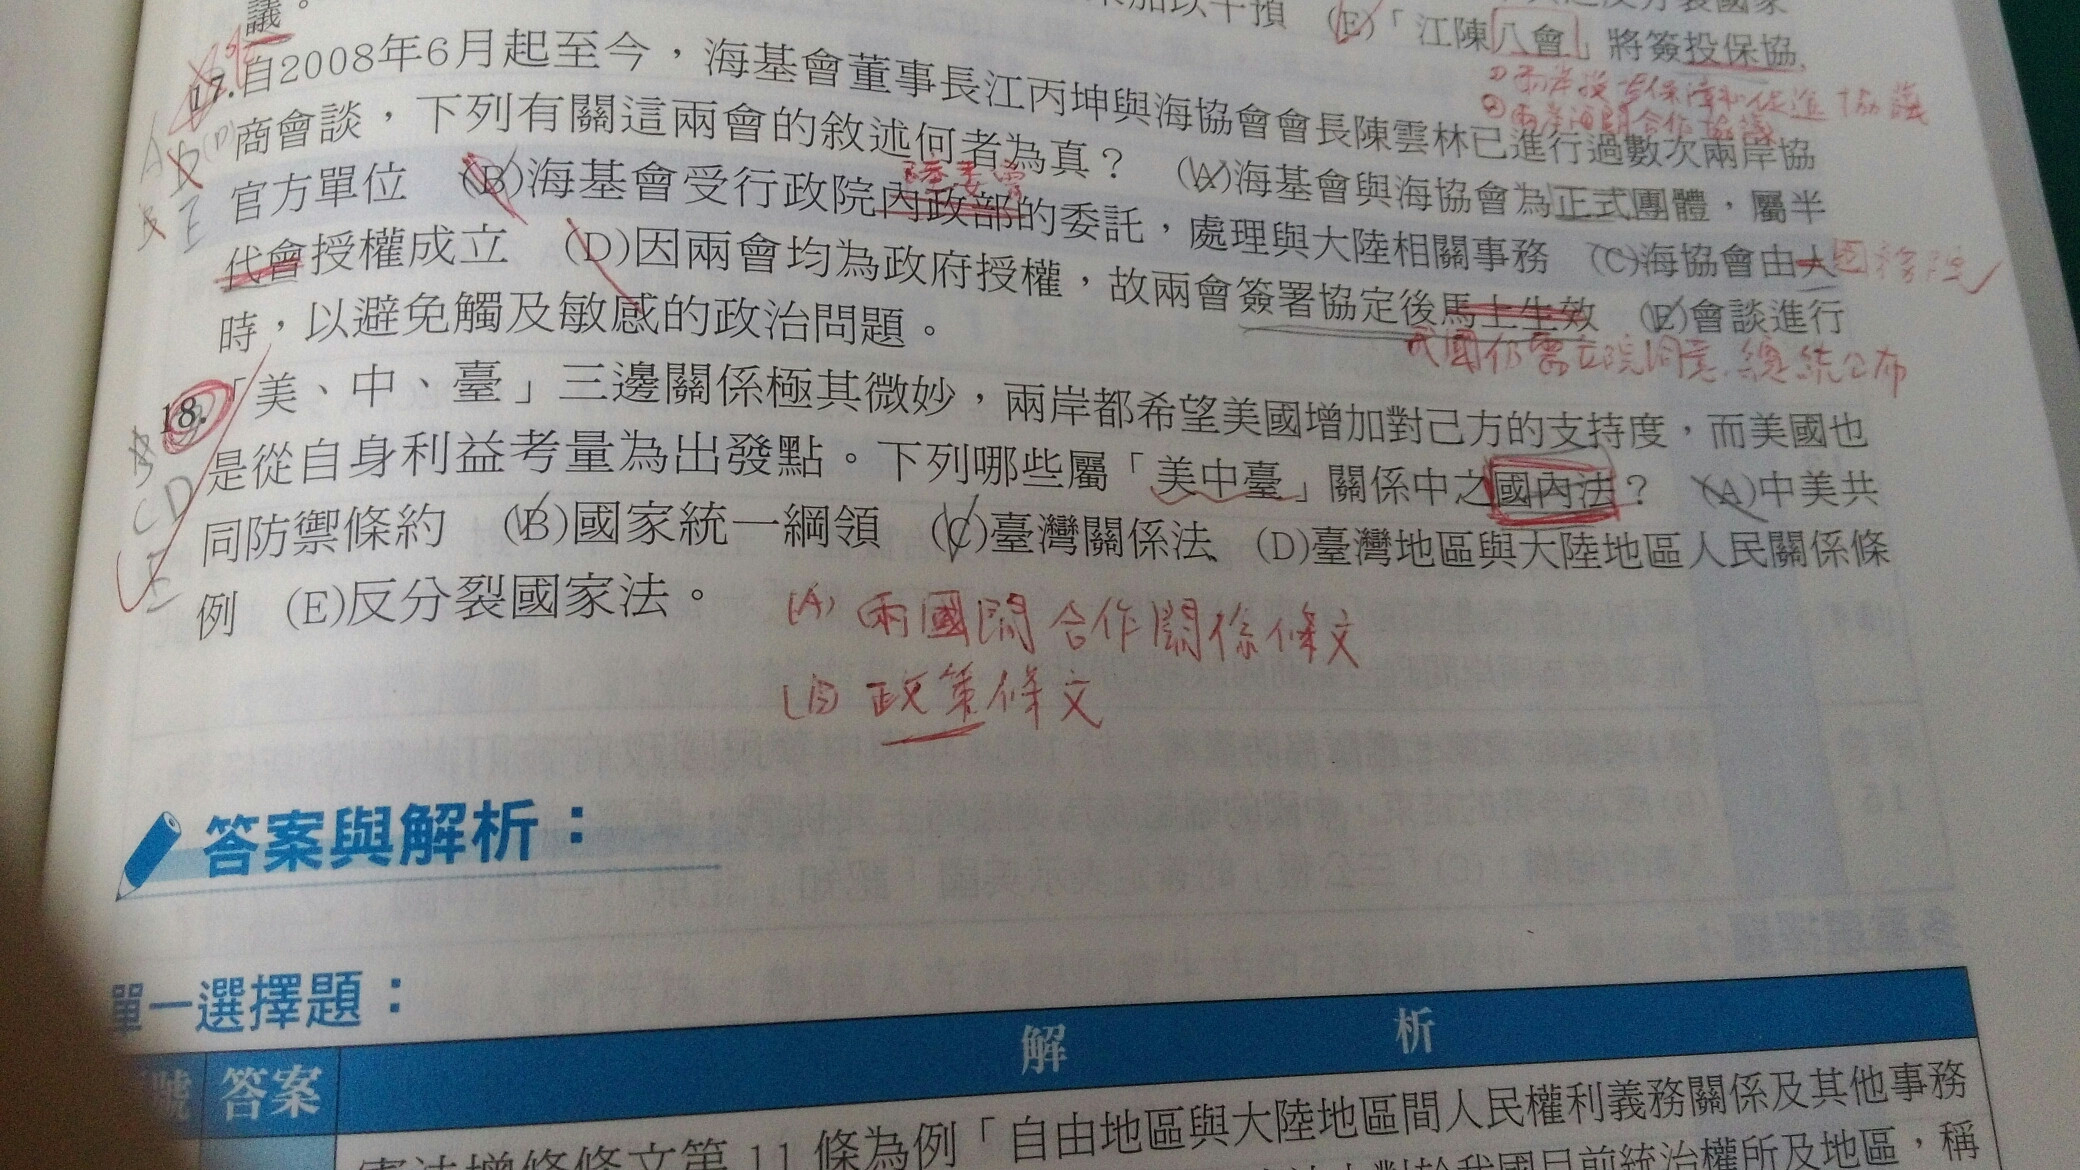 議。
加以干預 (E)「江陳八會」將簽投保協
①兩岸投資保障和促進協議
②兩岸海關合作協議
17.自2008年6月起至今，海基會董事長江丙坤與海協會會長陳雲林已進行過數次兩岸協
商會談，下列有關這兩會的敘述何者為真？ (A)海基會與海協會為正式團體，屬半
陸委會
官方單位 (B)海基會受行政院內政部的委託，處理與大陸相關事務 (C)海協會由人
國務院
代會授權成立 (D)因兩會均為政府授權，故兩會簽署協定後馬上生效 (E)會談進行
我國仍需立院同意,總統公布
時，以避免觸及敏感的政治問題。
18.「美、中、臺」三邊關係極其微妙，兩岸都希望美國增加對己方的支持度，而美國也
是從自身利益考量為出發點。下列哪些屬「美中臺」關係中之國內法？ (A)中美共
CD
E
同防禦條約 (B)國家統一綱領 (C)臺灣關係法 (D)臺灣地區與大陸地區人民關係條
例 (E)反分裂國家法。
(A) 兩國間合作關係條文
(B) 政策條文
答案與解析：
單一選擇題：
號 答案 解析
憲法增修條文第 11 條為例「自由地區與大陸地區間人民權利義務關係及其他事務
對於我國目前統治權所及地區，稱